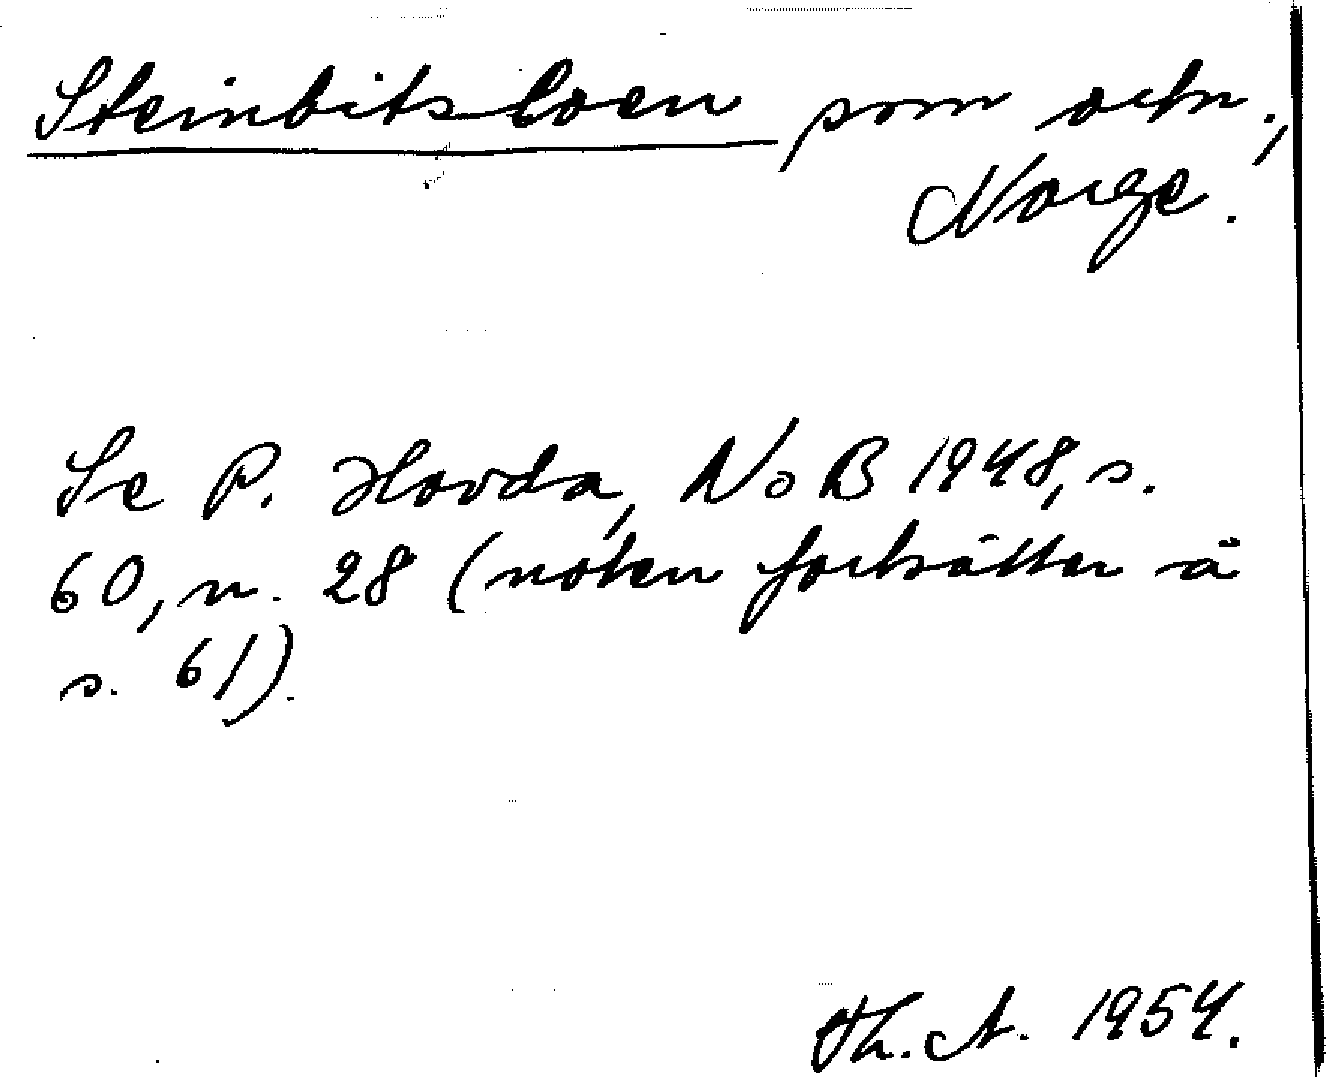 Steinbitsboen som ortn.,
Norge.
Se P. Hovda, NoB 1948, s.
60, n. 28 (noten fortsätter å
s. 61).
Th. A. 1954.